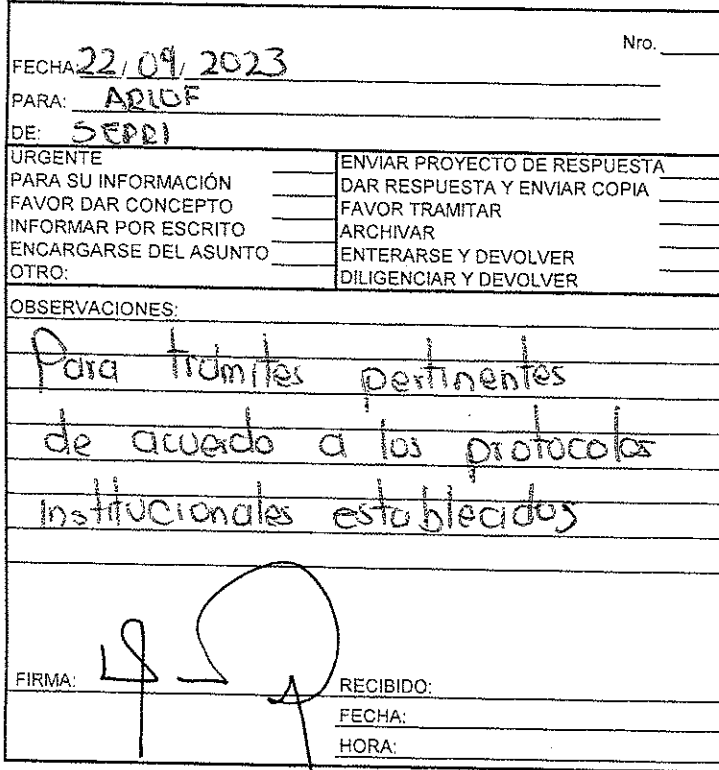 Nro.
FECHA: 22/09/2023
PARA: ARLOF
DE: SEPRI
URGENTE
PARA SU INFORMACIÓN
FAVOR DAR CONCEPTO
INFORMAR POR ESCRITO
ENCARGARSE DEL ASUNTO
OTRO:
ENVIAR PROYECTO DE RESPUESTA
DAR RESPUESTA Y ENVIAR COPIA
FAVOR TRAMITAR
ARCHIVAR
ENTERARSE Y DEVOLVER
DILIGENCIAR Y DEVOLVER
OBSERVACIONES:
Para trámites pertinentes
de acuerdo a los protocolos
institucionales establecidos
FIRMA:
RECIBIDO:
FECHA:
HORA: